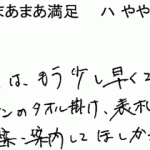 まあまあ満足 ハ やや
は、もう少し早くて
ンのタオル掛け、表札
案内してほしか